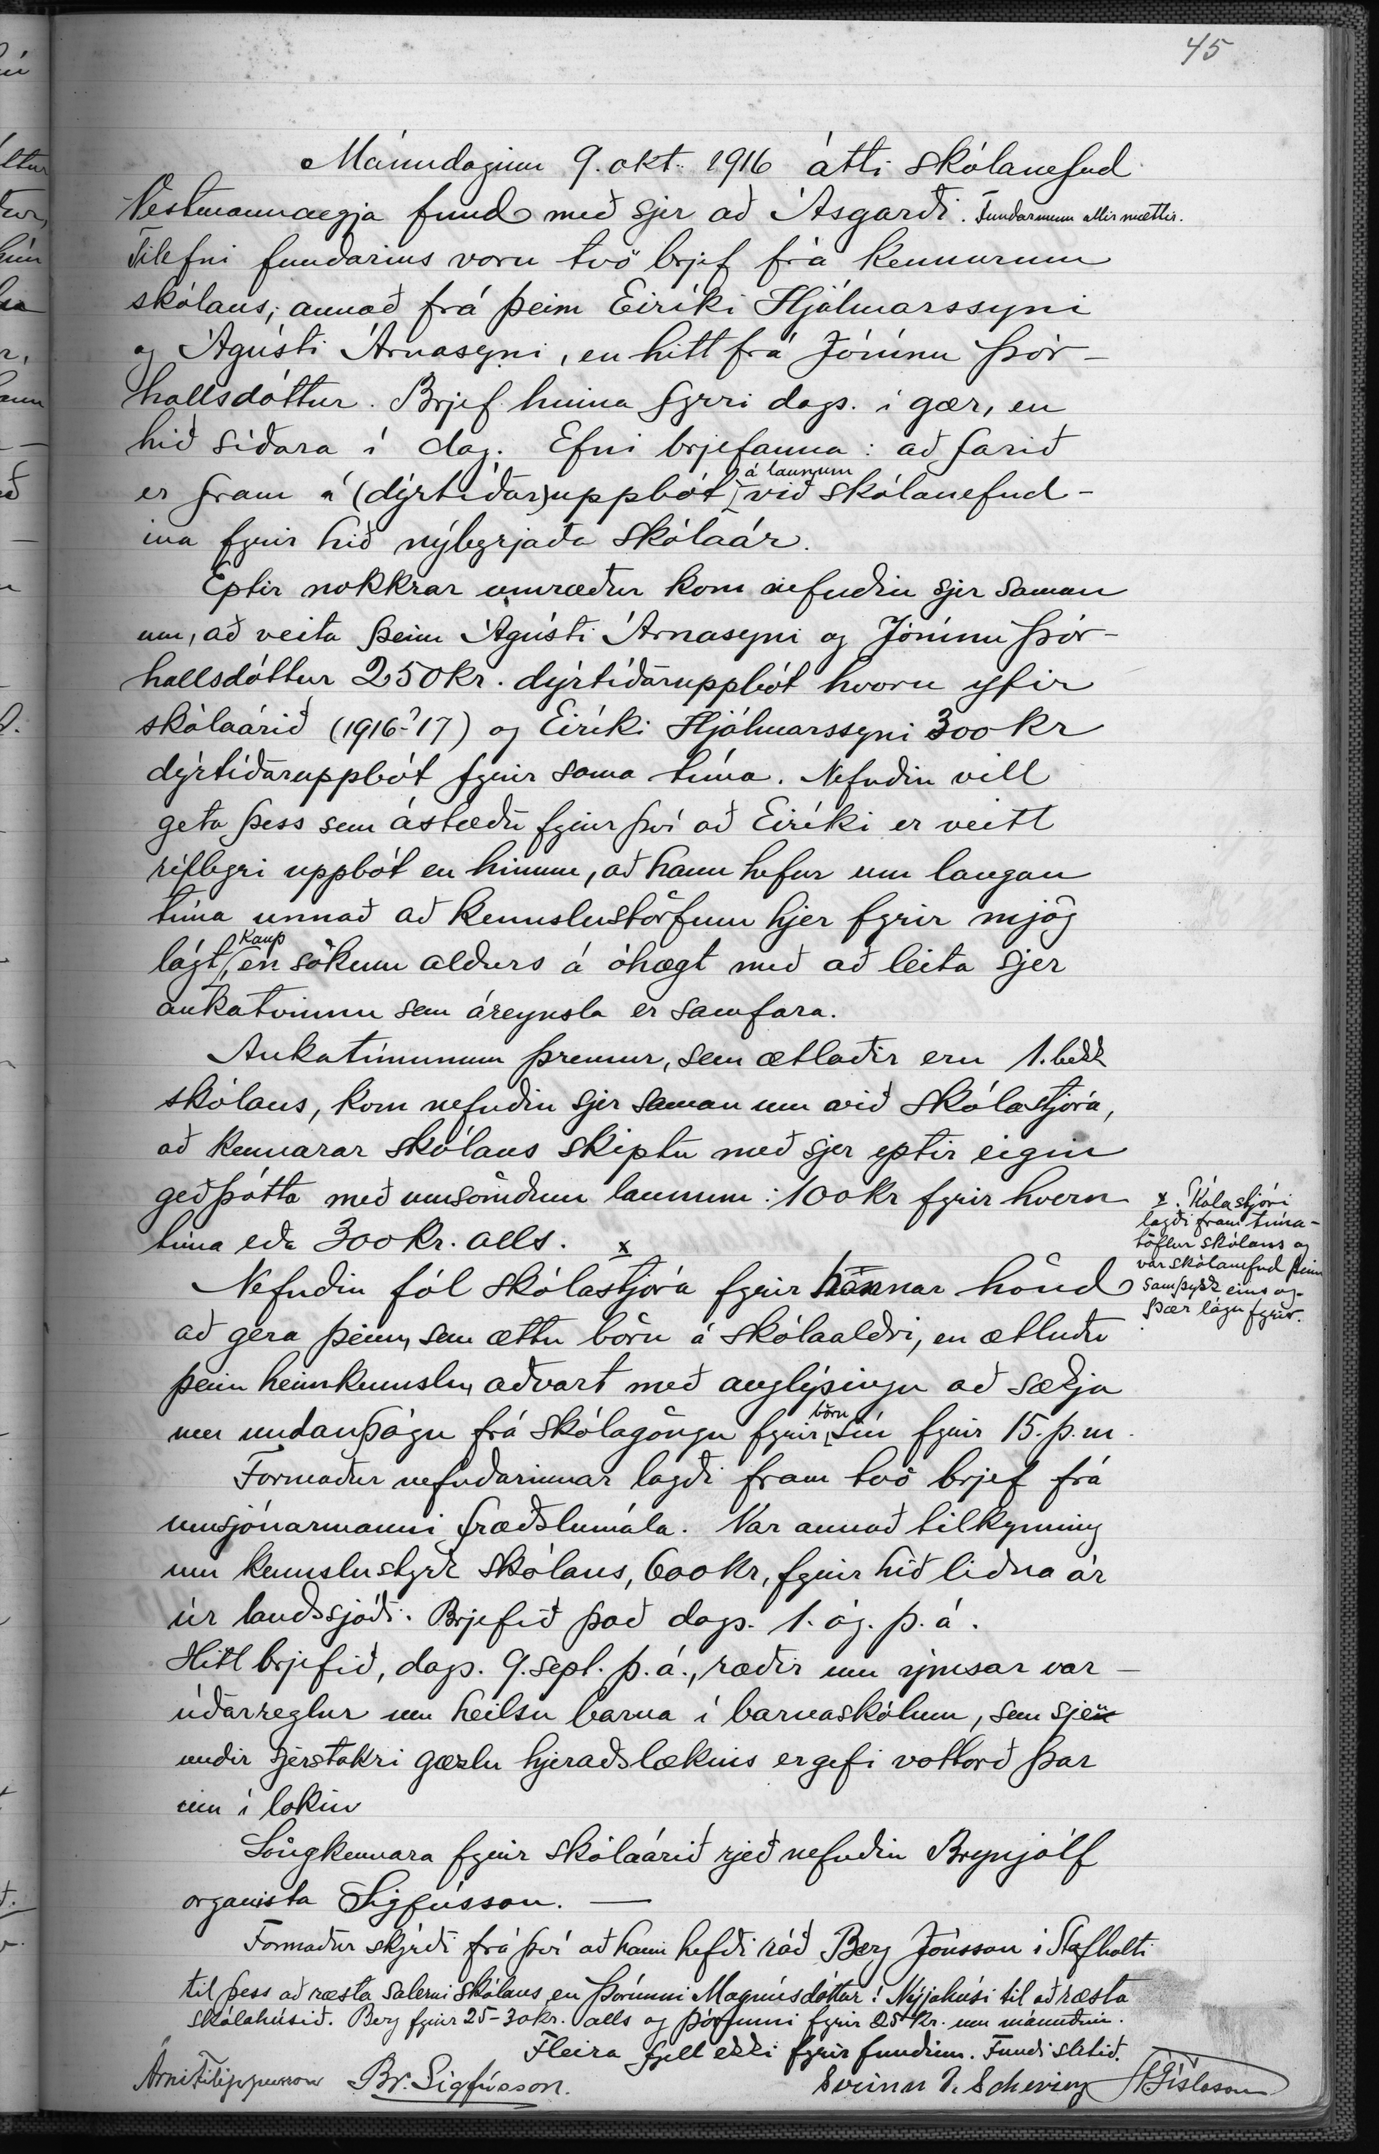 45
Mánudaginn 9. okt. 1916 átti skólanefnd
Vestmannaeyja fund með sjer að Ásgarði. Fundarmenn allir mættir.
Tilefni fundarins voru tvö brjef frá kennurum
skólans; annað frá þeim Eiríki Hjálmarssyni
og Ágústi Árnasyni, en hitt frá Jónínu Þór-
hallsdóttur. Brjef hinna fyrri dags. í gær, en
hið síðara í dag. Efni brjefanna: að farið
er fram á (dýrtíðar)uppbót á launum við skólanefnd-
ina fyrir hið nýbyrjaða skólaár.
Eptir nokkrar umræður kom nefndin sjer saman
um, að veita þeim Ágústi Árnasyni og Jónínu Þór-
hallsdóttur 250 kr. dýrtíðaruppbót hvoru yfir
skólaárið (1916-'17) og Eiríki Hjálmarssyni 300 kr
dýrtíðaruppbót fyrir sama tíma. Nefndin vill
geta þess sem ástæðu fyrir því að Eiríki er veitt
ríflegri uppbót en hinum, að hann hefur um langan
tíma unnað að kennslustörfum hjer fyrir mjög
lágt kaup, en sökum aldurs á óhægt með að leita sjer
aukatvinnu sem áreynsla er samfara.
Aukatímunum þremur, sem ætlaðir eru 1. bekk
skólans, kom nefndin sjer saman um við skólastjóra,
að kennarar skólans skiptu með sjer eptir eigin
geðþótta með umsömdum launum: 100 kr fyrir hvern
tíma eða 300 kr. alls. x
x. Skólastjóri
lagði fram tíma-
töflur skólans og
var skólanefnd þeim
samþykk eins og
þær lágu fyrir.
Nefndin fól skólastjóra fyrir hennar hönd
að gera þeim, sem ættu börn á skólaaldri, en ætluðu
þeim heimkennslu, aðvart með auglýsingu að sækja
um undanþágu frá skólagöngu fyrir börn sín fyrir 15. þ.m.
Formaður nefndarinnar lagði fram tvö brjef frá
umsjónarmanni fræðslumála. Var annað tilkynning
um kennslustyrk skólans, 600 kr, fyrir hið liðna ár
úr landssjóði. Brjefið það dags. 1. ág. þ.á.
Hitt brjefið, dags. 9. sept. þ.á., ræðir um ýmsar var-
úðarreglur um heilsu barna í barnaskólum, sem sje
undir sjerstakri gæzlu hjeraðslæknis er gefi vottorð þar
um í lokin
Söngkennara fyrir skólaárið rjeð nefndin Brynjólf
organista Sigfússon. —
Formaður skýrði frá því að hann hefði ráð Berg Jónsson í Stafholti
til þess að ræsta salerni skólans en Þórunni Magnúsdóttur í Nýjahúsi til að ræsta
skólahúsið. Berg fyrir 25-30 kr. alls og Þórunni fyrir 25 kr. um mánuðinn.
Fleira fyll ekki fyrir fundinn. Fundi slitið.
Árni Filippusson Br. Sigfússon. Sveinn P. Scheving Gíslason